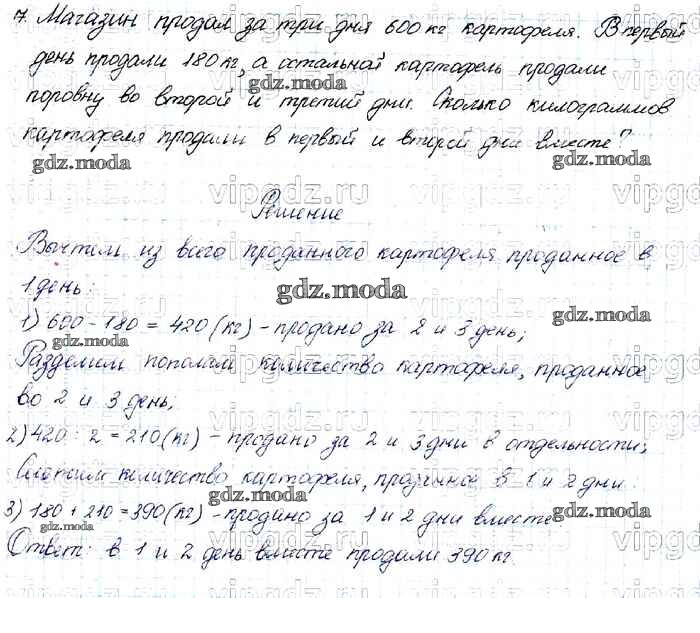 7. Магазин продал за три дня 600 кг картофеля. В первый
день продали 180 кг, а остальной картофель продали
поровну во второй и третий дни. Сколько килограммов
картофеля продали в первый и второй дни вместе?
gdz.moda
gdz.moda
vipgdz.ru
Решение
Вычтем из всего проданного картофеля проданное в
1 день:
gdz.moda
gdz.moda
1) 600 - 180 = 420 (кг) - продано за 2 и 3 день;
gdz.moda
Разделим пополам количество картофеля, проданное
во 2 и 3 день;
2) 420 : 2 = 210 (кг) - продано за 2 и 3 дни в отдельности;
Сложим количество картофеля, в 1 и 2 дни:
gdz.moda
3) 180 + 210 = 390 (кг) - продано за 1 и 2 дни вместе
gdz.moda
gdz.moda
Ответ: в 1 и 2 день вместе продали 390 кг.